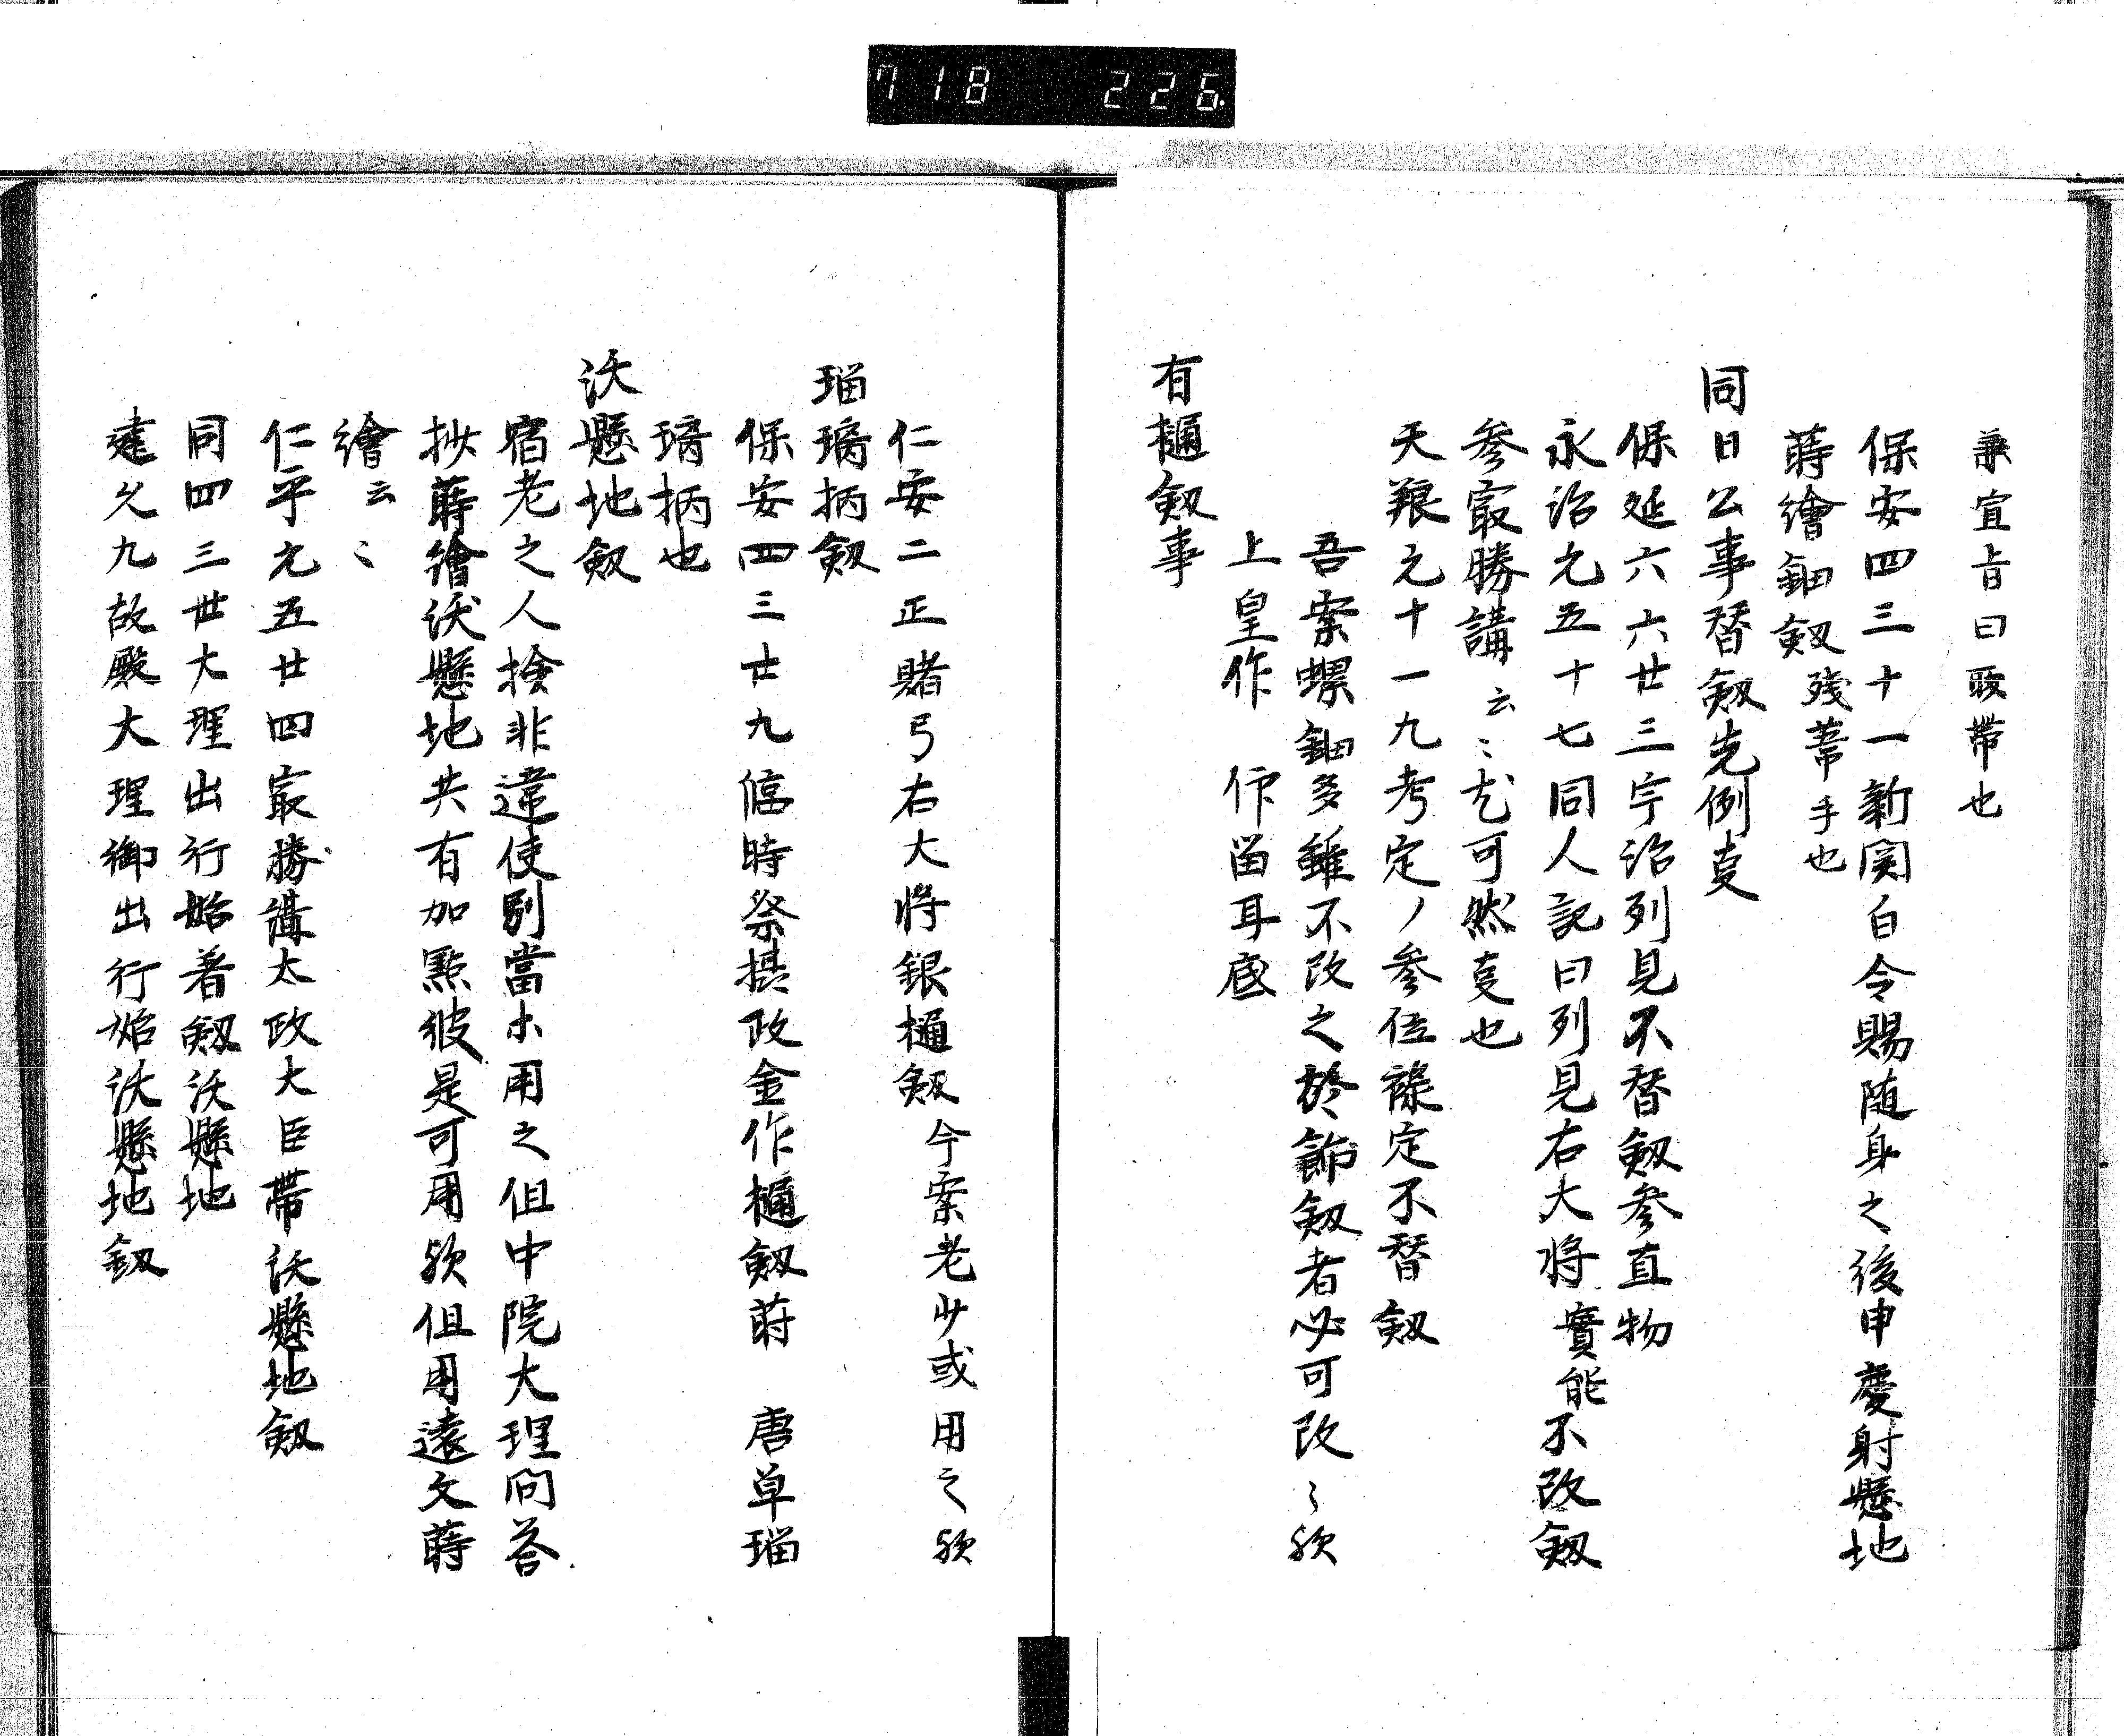 718 226
兼宣旨曰取帯也
保安四三十一新関白令賜随身之後申慶射懸地
蒔繪鈿釼残葦手也
同日公事替釼先例叓
保延六六廿三宇治列見不替釼参直物
永治元五十七同人記曰列見右大将實能不改釼
参最勝講云〻尤可然叓也
天養元十一九考定ノ参位禄定不替釼
吾案螺鈿多雖不改之於餝釼者必可改〻欤
上皇作 作留耳底
有樋釼事
仁安二正賭弓右大将銀樋釼今案老少或用之欤
瑠璃柄釼
保安四三廿九臨時祭摂政金作樋釼蒔 唐草瑠
璃柄也
沃懸地釼
宿老之人検非違使別當小用之但中院大理問答
抄蒔繪沃懸地共有加點彼是可用欤但用遠文蒔
繪云〻
仁平元五廿四最勝講太政大臣帯沃懸地釼
同四三廿大理出行始着釼沃懸地
建久九故殿大理御出行始沃懸地釼